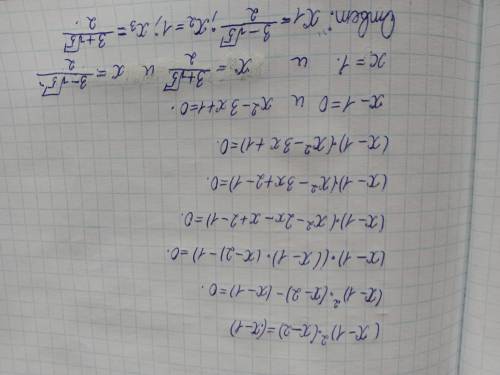 (x-1)²·(x-2)=(x-1)
(x-1)²·(x-2)-(x-1)=0.
(x-1)·((x-1)·(x-2)-1)=0.
(x-1)·(x²-2x-x+2-1)=0.
(x-1)·(x²-3x+2-1)=0.
(x-1)·(x²-3x+1)=0.
x-1=0 и x²-3x+1=0.
x=1. и x=\frac{3+√5}{2} и x=\frac{3-√5}{2}.
Ответ: x1=\frac{3-√5}{2}; x2=1; x3=\frac{3+√5}{2}.